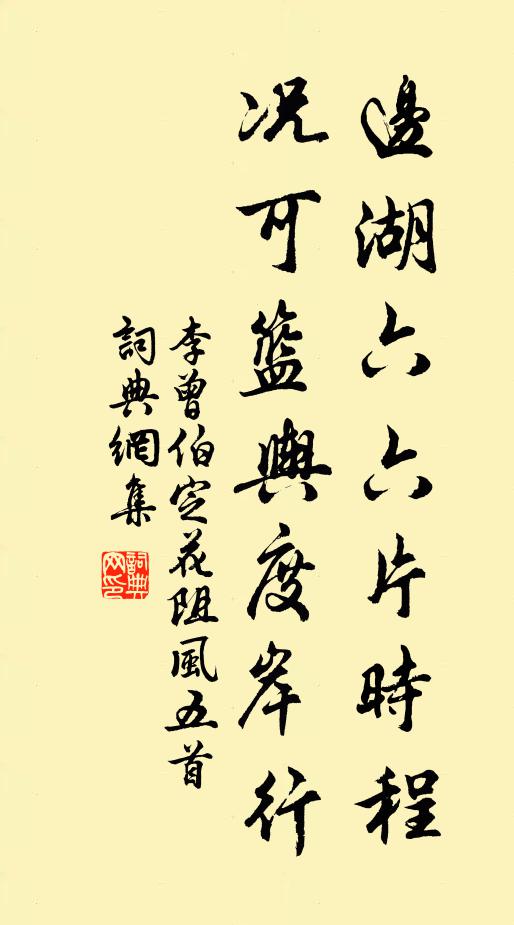 邊湖六六片時程
況可籃輿度岸行
李曾伯定花阻風五首
詞典網集
詞典網印